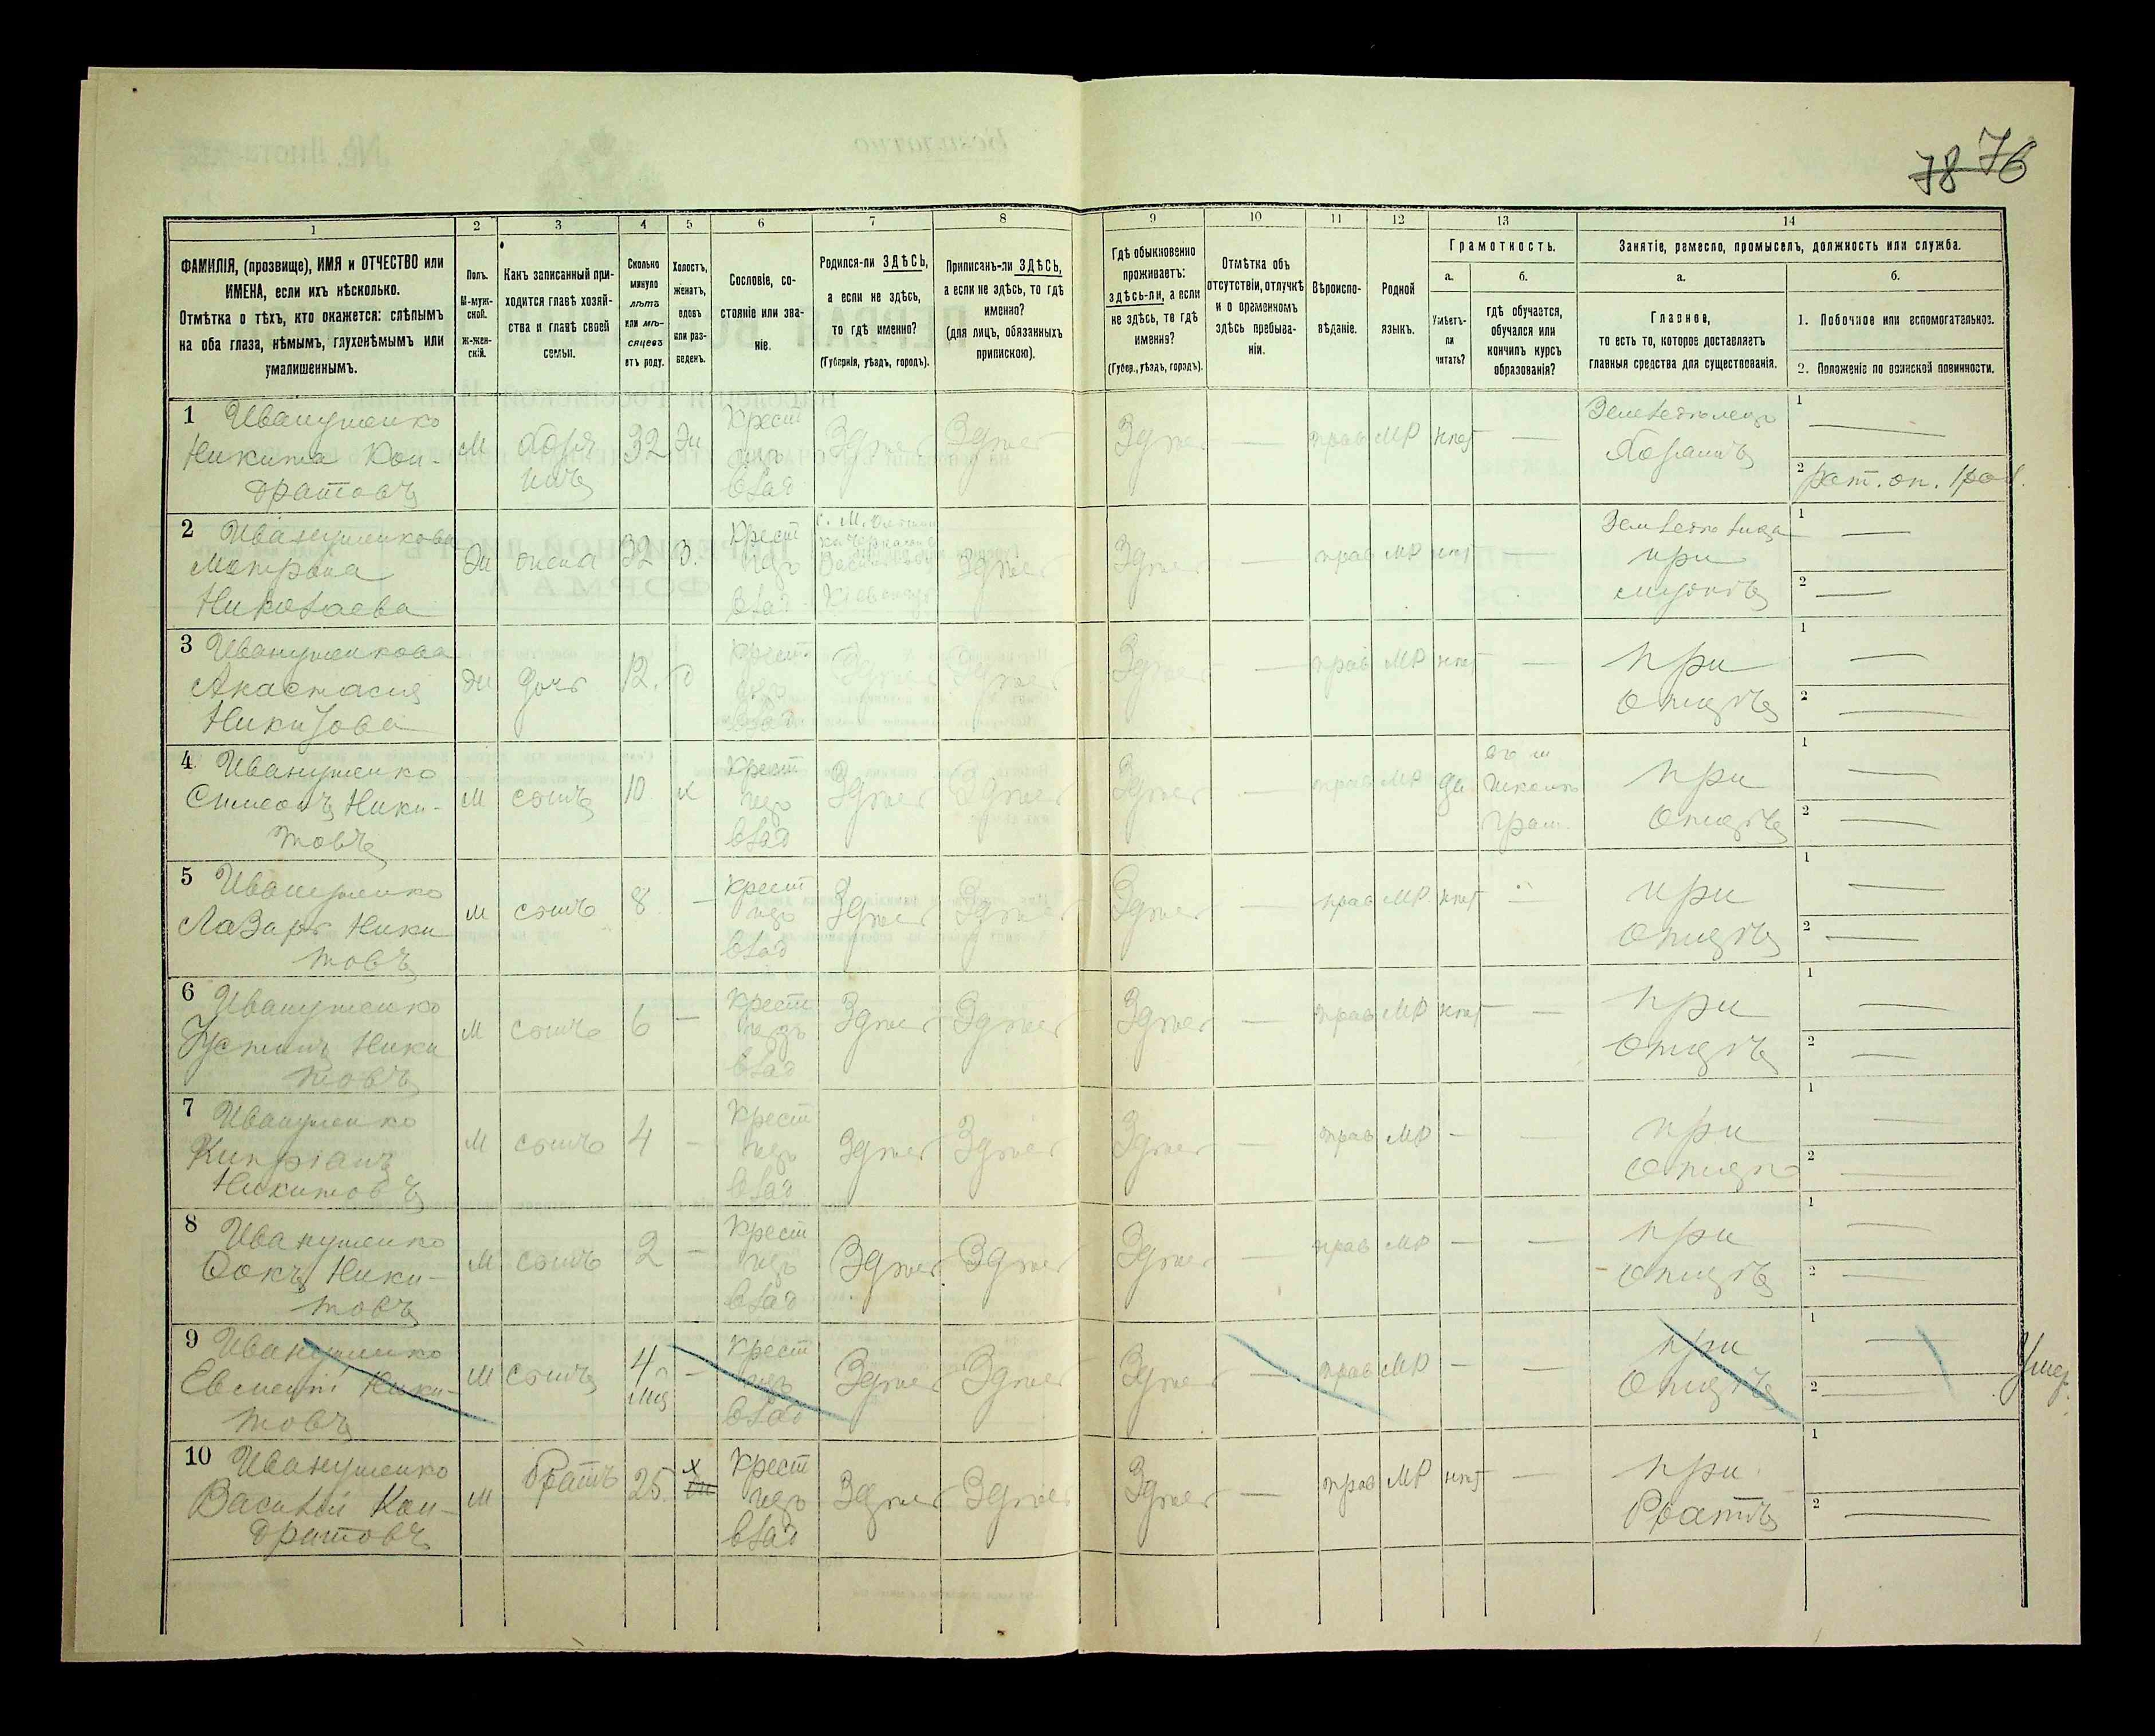 78 76
1
2
3
4
5
6
7
8
9
10
11
12
13
14
ФАМИЛІЯ, (прозвище), ИМЯ и ОТЧЕСТВО или
ИМЕНА, если ихъ нѣсколько.
Отмѣтка о тѣхъ, кто окажется: слѣпымъ
на оба глаза, нѣмымъ, глухонѣмымъ или
умалишеннымъ.
Полъ.
М-муж-
ской.
Ж-жен-
скій.
Какъ записанный при-
ходится главѣ хозяй-
ства и главѣ своей
семьи.
Сколько
минуло
лѣтъ
или мѣ-
сяцевъ
отъ роду.
Холостъ,
женатъ,
вдовъ
или раз-
веденъ.
Сословіе, со-
стояніе или зва-
ніе.
Родился-ли ЗДѢСЬ,
а если не здѣсь,
то гдѣ именно?
(Губернія, уѣздъ, городъ).
Приписанъ-ли ЗДѢСЬ,
а если не здѣсь, то гдѣ
именно?
(для лицъ, обязанныхъ
припискою).
Гдѣ обыкновенно
проживаетъ:
здѣсь-ли, а если
не здѣсь, то гдѣ
именно?
(Губер., уѣздъ, городъ).
Отмѣтка объ
отсутствіи, отлучкѣ
и о временномъ
здѣсь пребыва-
ніи.
Вѣроиспо-
вѣданіе.
Родной
языкъ.
Грамотность.
а.
б.
Умѣетъ-
ли
читать?
гдѣ обучается,
обучался или
кончилъ курсъ
образованія?
Занятіе, ремесло, промыселъ, должность или служба.
а.
б.
Главное,
то есть то, которое доставляетъ
главныя средства для существованія.
1. Побочное или вспомогательное.
2. Положеніе по воинской повинности.
1 Иванушенко
Никита Кон-
дратовъ
М
хозя
инъ
32
Ж
Крест
изъ
влад
Здѣсь
Здѣсь
Здѣсь
—
прав
МР
нѣт
—
Земледѣлецъ
хозяинъ
1 —
2 рат. оп. 1 раз.
2 Иванушенкова
Матрона
Николаева
Ж
жена
32
З.
Крест
изъ
влад
Здѣсь
Здѣсь
—
прав
МР
нѣт
Земледѣлица
при
мужѣ
1 —
2 —
3 Иванушенкова
Анастасия
Никитова
Ж
дочь
12.
д
Крест.
изъ
влад
Здѣсь
Здѣсь
Здѣсь
—
прав
МР
нѣт
—
при
отцѣ
1 —
2 —
4 Иванушенко
Симеонъ Ники-
товъ
М
сынъ
10.
х
Крест
изъ
влад
Здѣсь
Здѣсь
Здѣсь
—
прав
МР
да
въ ш
школѣ
грам.
при
отцѣ
1 —
2 —
5 Иванушенко
Лазарь Ники
товъ
М
сынъ
8.
—
Крест
изъ
влад
Здѣсь
Здѣсь
Здѣсь
—
прав
МР.
нѣт
—
при
отцѣ
1 —
2 —
6 Иванушенко
Устинъ Ники
товъ
М
сынъ
6
—
Крест
изъ
влад
Здѣсь
Здѣсь
Здѣсь
—
прав
МР
нѣт
—
при
отцѣ
1 —
2 —
7 Иванушенко
Кипріанъ
Никитовъ
М
сынъ
4
—
Крест
изъ
влад
Здѣсь
Здѣсь
Здѣсь
—
прав
МР
—
—
при
отцѣ
1 —
2 —
8 Иванушенко
Фокъ Ники-
товъ
М
сынъ
2
—
Крест
изъ
влад
Здѣсь
Здѣсь
Здѣсь
—
прав
МР
—
—
при
отцѣ
1 —
2 —
9 Иванушенко
Евсеній Ники-
товъ
М
сынъ
4
мц
—
Крест
изъ
влад
Здѣсь
Здѣсь
Здѣсь
—
прав
МР
—
—
при
отцѣ
1 —
2 —
Умер.
10 Иванушенко
Василій Кон-
дратовъ
М
братъ
25.
х
Крест
изъ
влад
Здѣсь
Здѣсь
Здѣсь
—
прав
МР
нѣт
—
при
братѣ
1
2 —